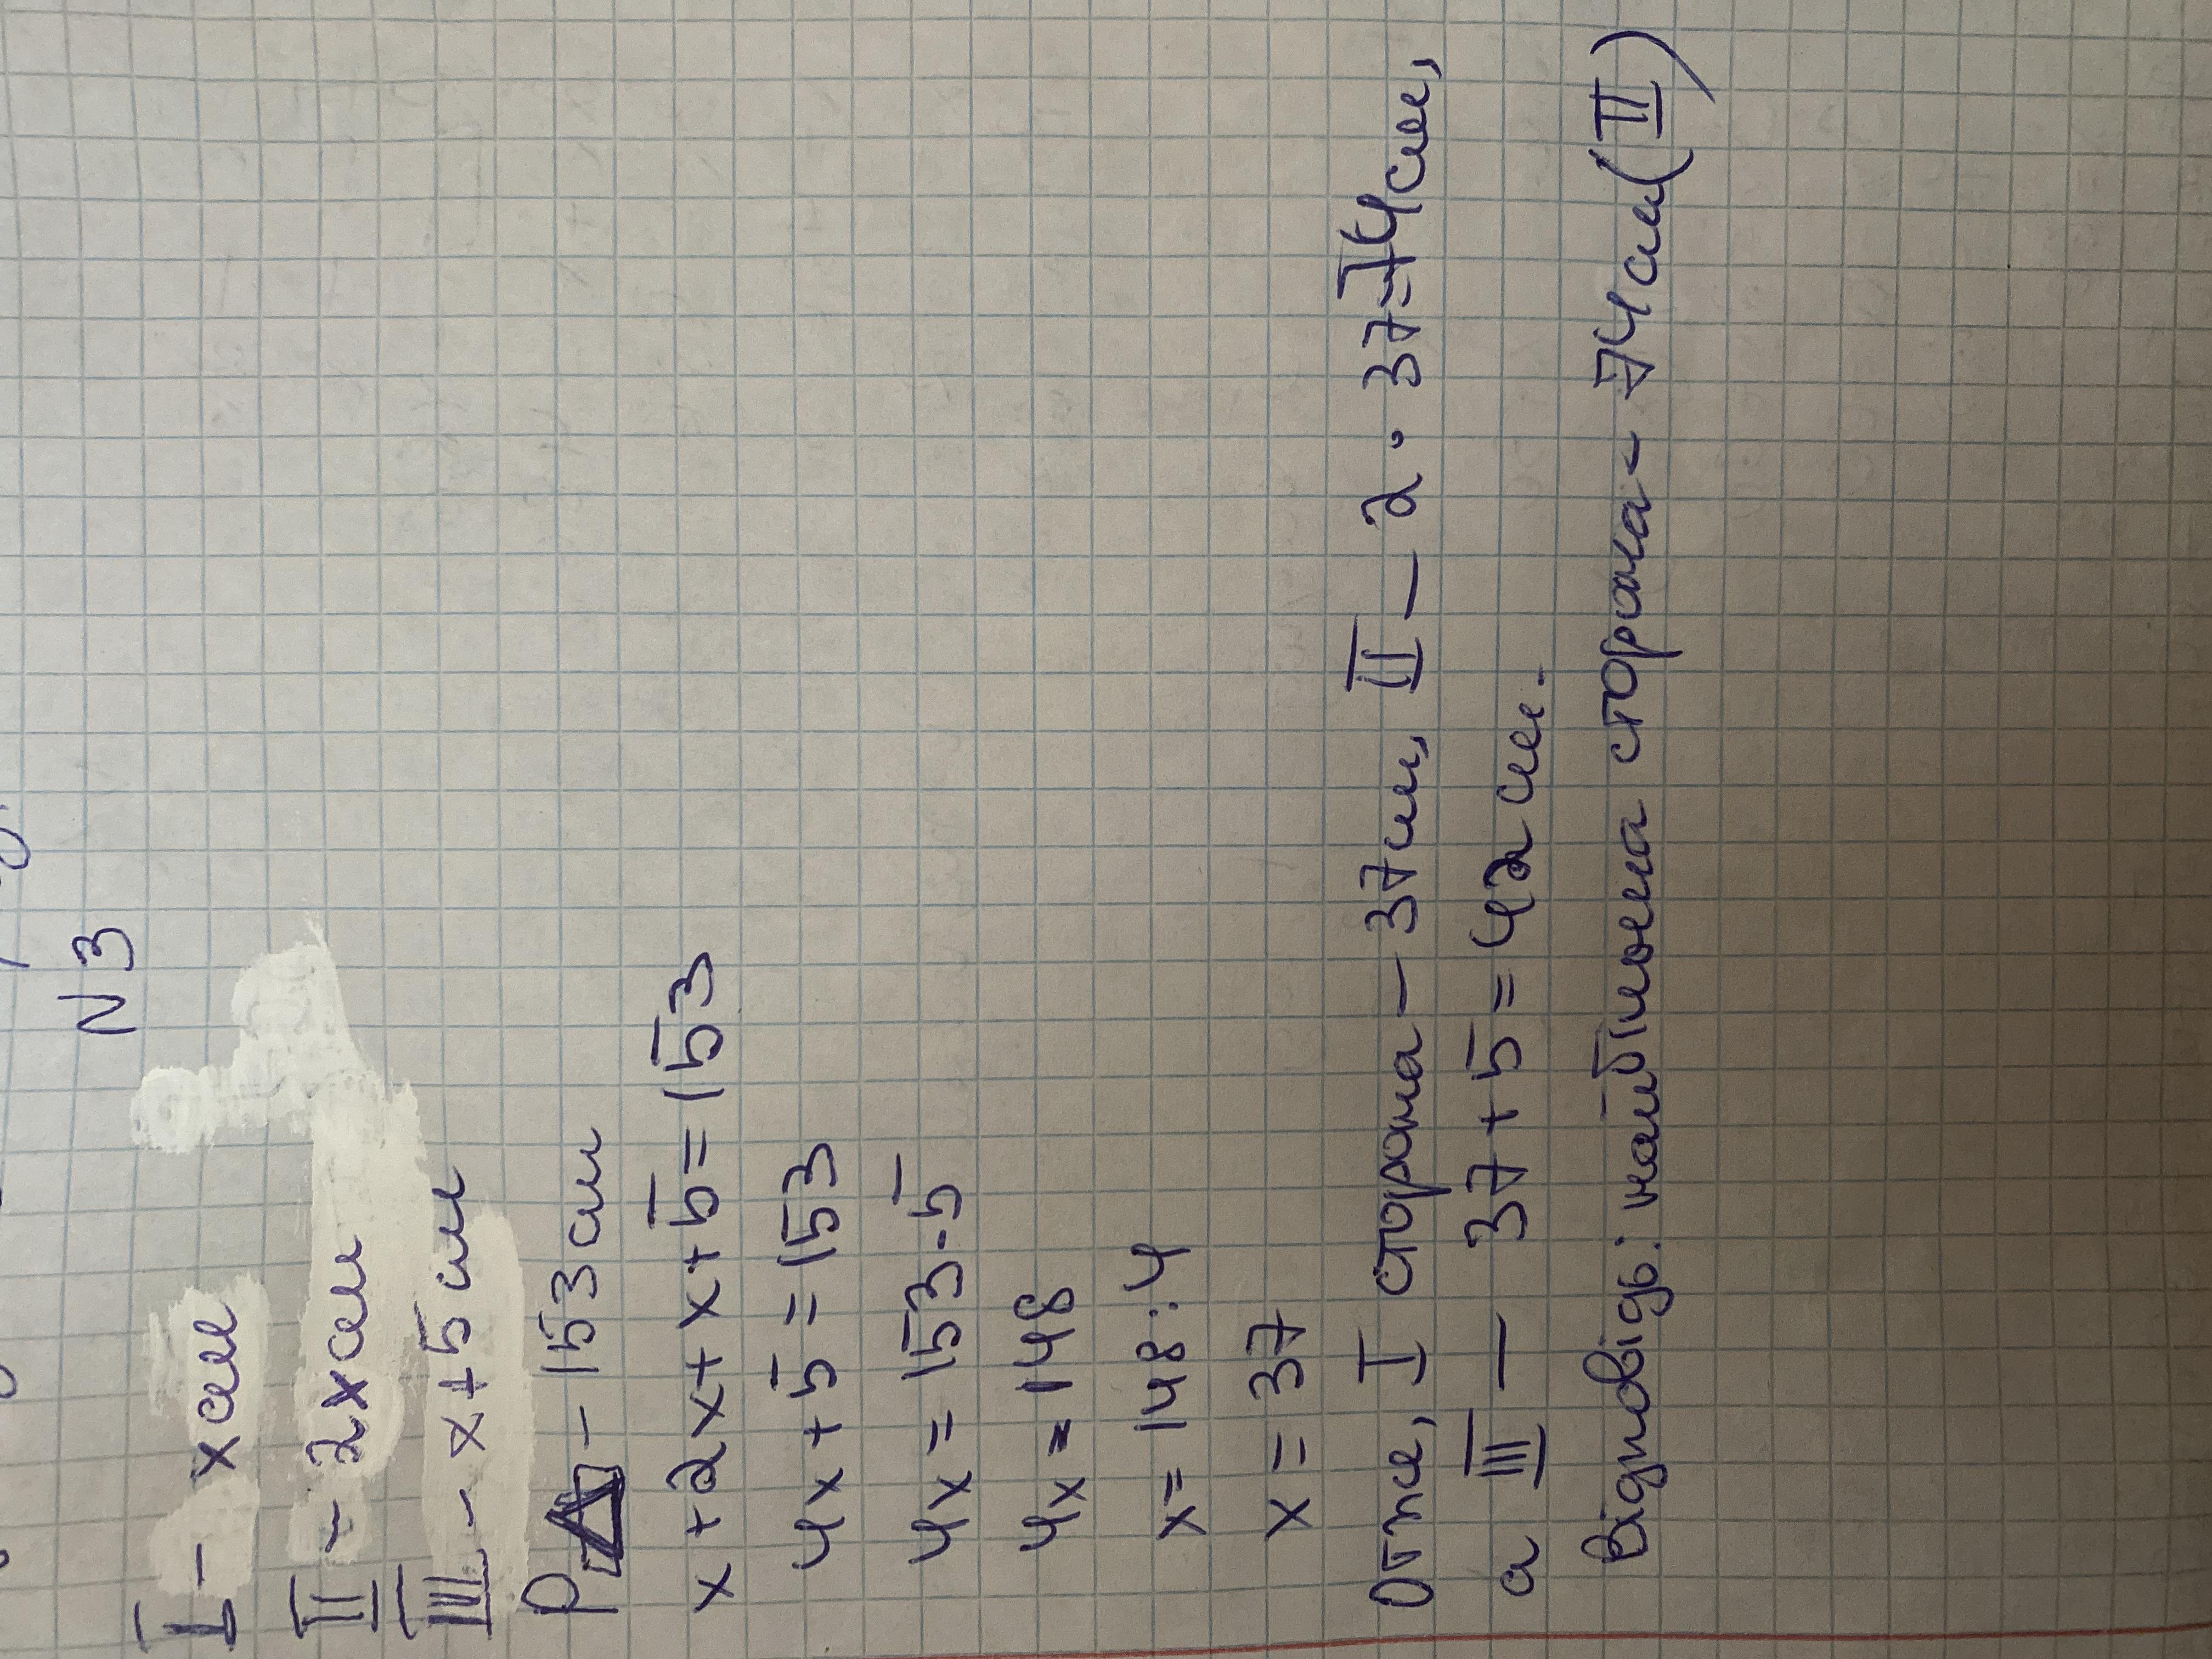 N 3
I - x см
II - 2x см
III - x+5 см
P△ - 153 см
x+2x+x+5=153
4x+5=153
4x=153-5
4x=148
x=148:4
x=37
Отже, I сторона - 37 см, II - 2·37=74 см,
а III - 37+5=42 см.
Відповідь: найбільша сторона - 74 см (II)